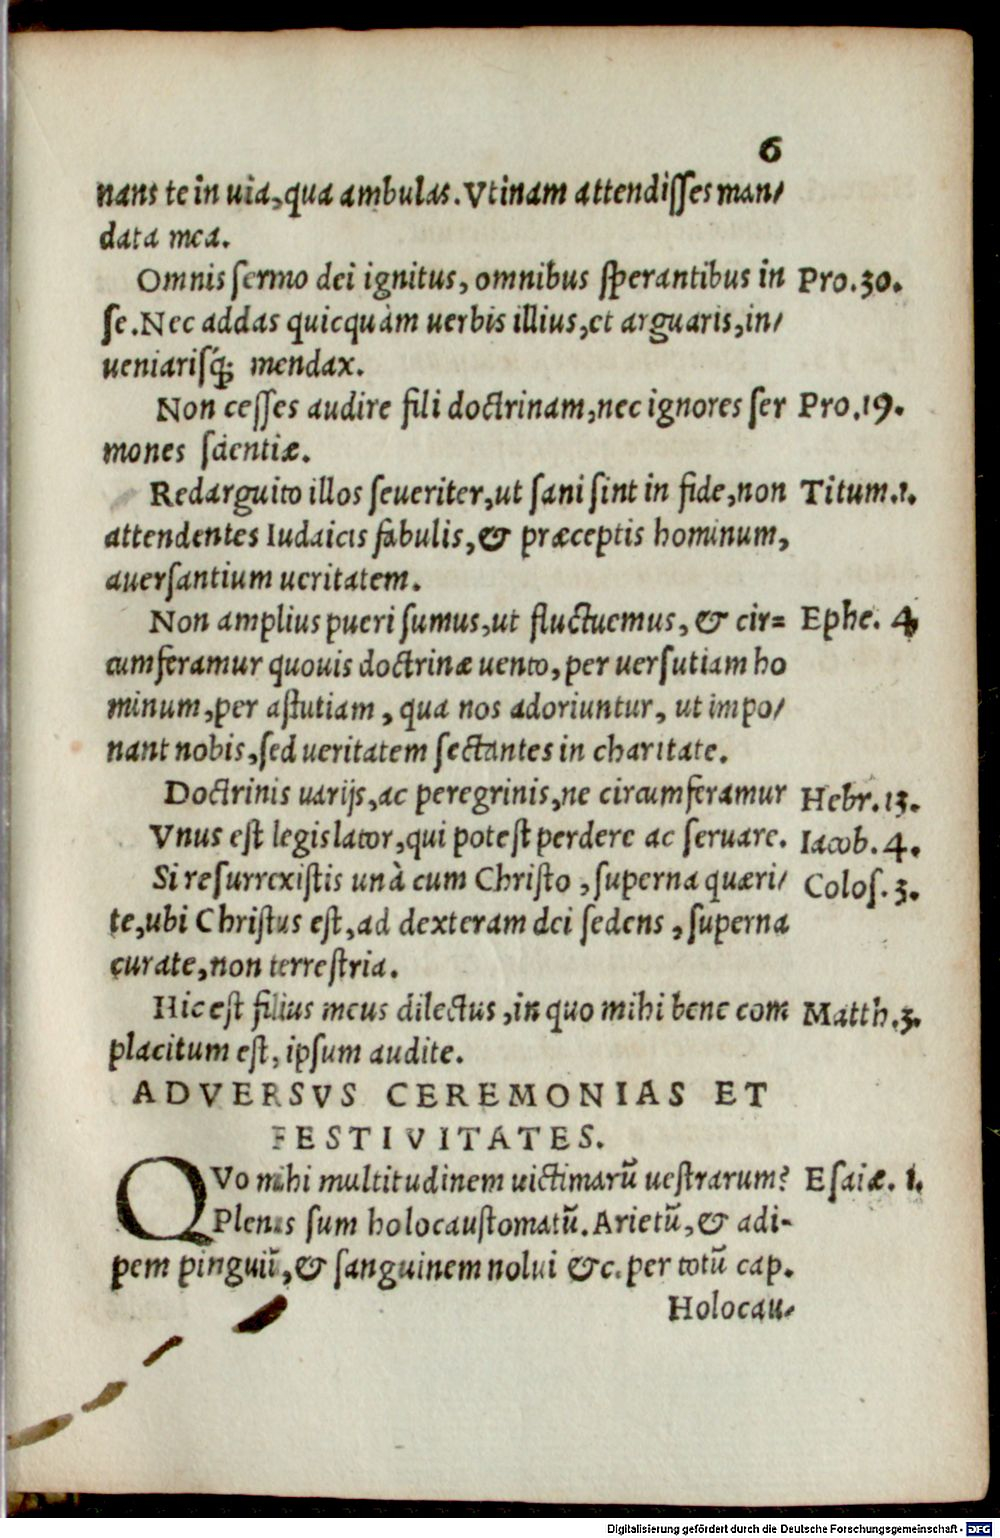 6
nans te in uia, qua ambulas. Vtinam attendisses man/
data mea.
Omnis sermo dei ignitus, omnibus sperantibus in Pro. 30.
se. Nec addas quicquàm uerbis illius, et arguaris, in/
ueniarisq́; mendax.
Non cesses audire fili doctrinam, nec ignores ser Pro. 19.
mones scientiæ.
Redarguito illos seueriter, ut sani sint in fide, non Titum. 1.
attendentes Iudaicis fabulis, & præceptis hominum,
auersantium ueritatem.
Non amplius pueri sumus, ut fluctuemus, & cir= Ephe. 4
cumferamur quouis doctrinæ uento, per uersutiam ho
minum, per astutiam, qua nos adoriuntur, ut impo/
nant nobis, sed ueritatem sectantes in charitate.
Doctrinis uarijs, ac peregrinis, ne circumferamur Hebr. 13.
Vnus est legislator, qui potest perdere ac seruare. Iacob. 4.
Si resurrexistis unà cum Christo, superna quæri/ Colos. 3.
te, ubi Christus est, ad dexteram dei sedens, superna
curate, non terrestria.
Hic est filius meus dilectus, in quo mihi bene com Matth. 3.
placitum est, ipsum audite.
ADVERSVS CEREMONIAS ET
FESTIVITATES.
QVo mihi multitudinem uictimarũ uestrarum? Esaiæ. 1.
Plenus sum holocaustomatũ. Arietũ, & adi-
pem pinguiũ, & sanguinem nolui &c. per totũ cap.
Holocau-
Digitalisierung gefördert durch die Deutsche Forschungsgemeinschaft - DFG